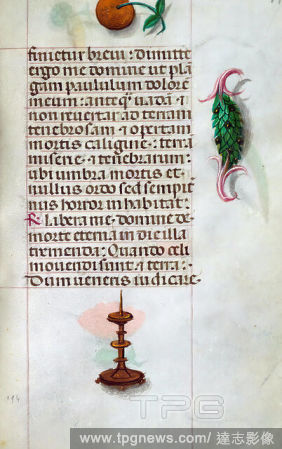 finietur breui: dimitte
ergo me domine ut plā
gam paululum dolorē
meum: anteq̄ uadā et
non reuertar ad terram
tenebrosam et opertam
mortis caligine: terrā
miserie et tenebrarum:
ubi umbra mortis et
nullus ordo sed sempit
nus horror inhabitat:
R Libera me domine de
morte eterna in die illa
tremenda: Quando celi
mouendi sunt et terra:
Dum ueneris iudicare
114
TPG
www.tpgnews.com/ 達志影像